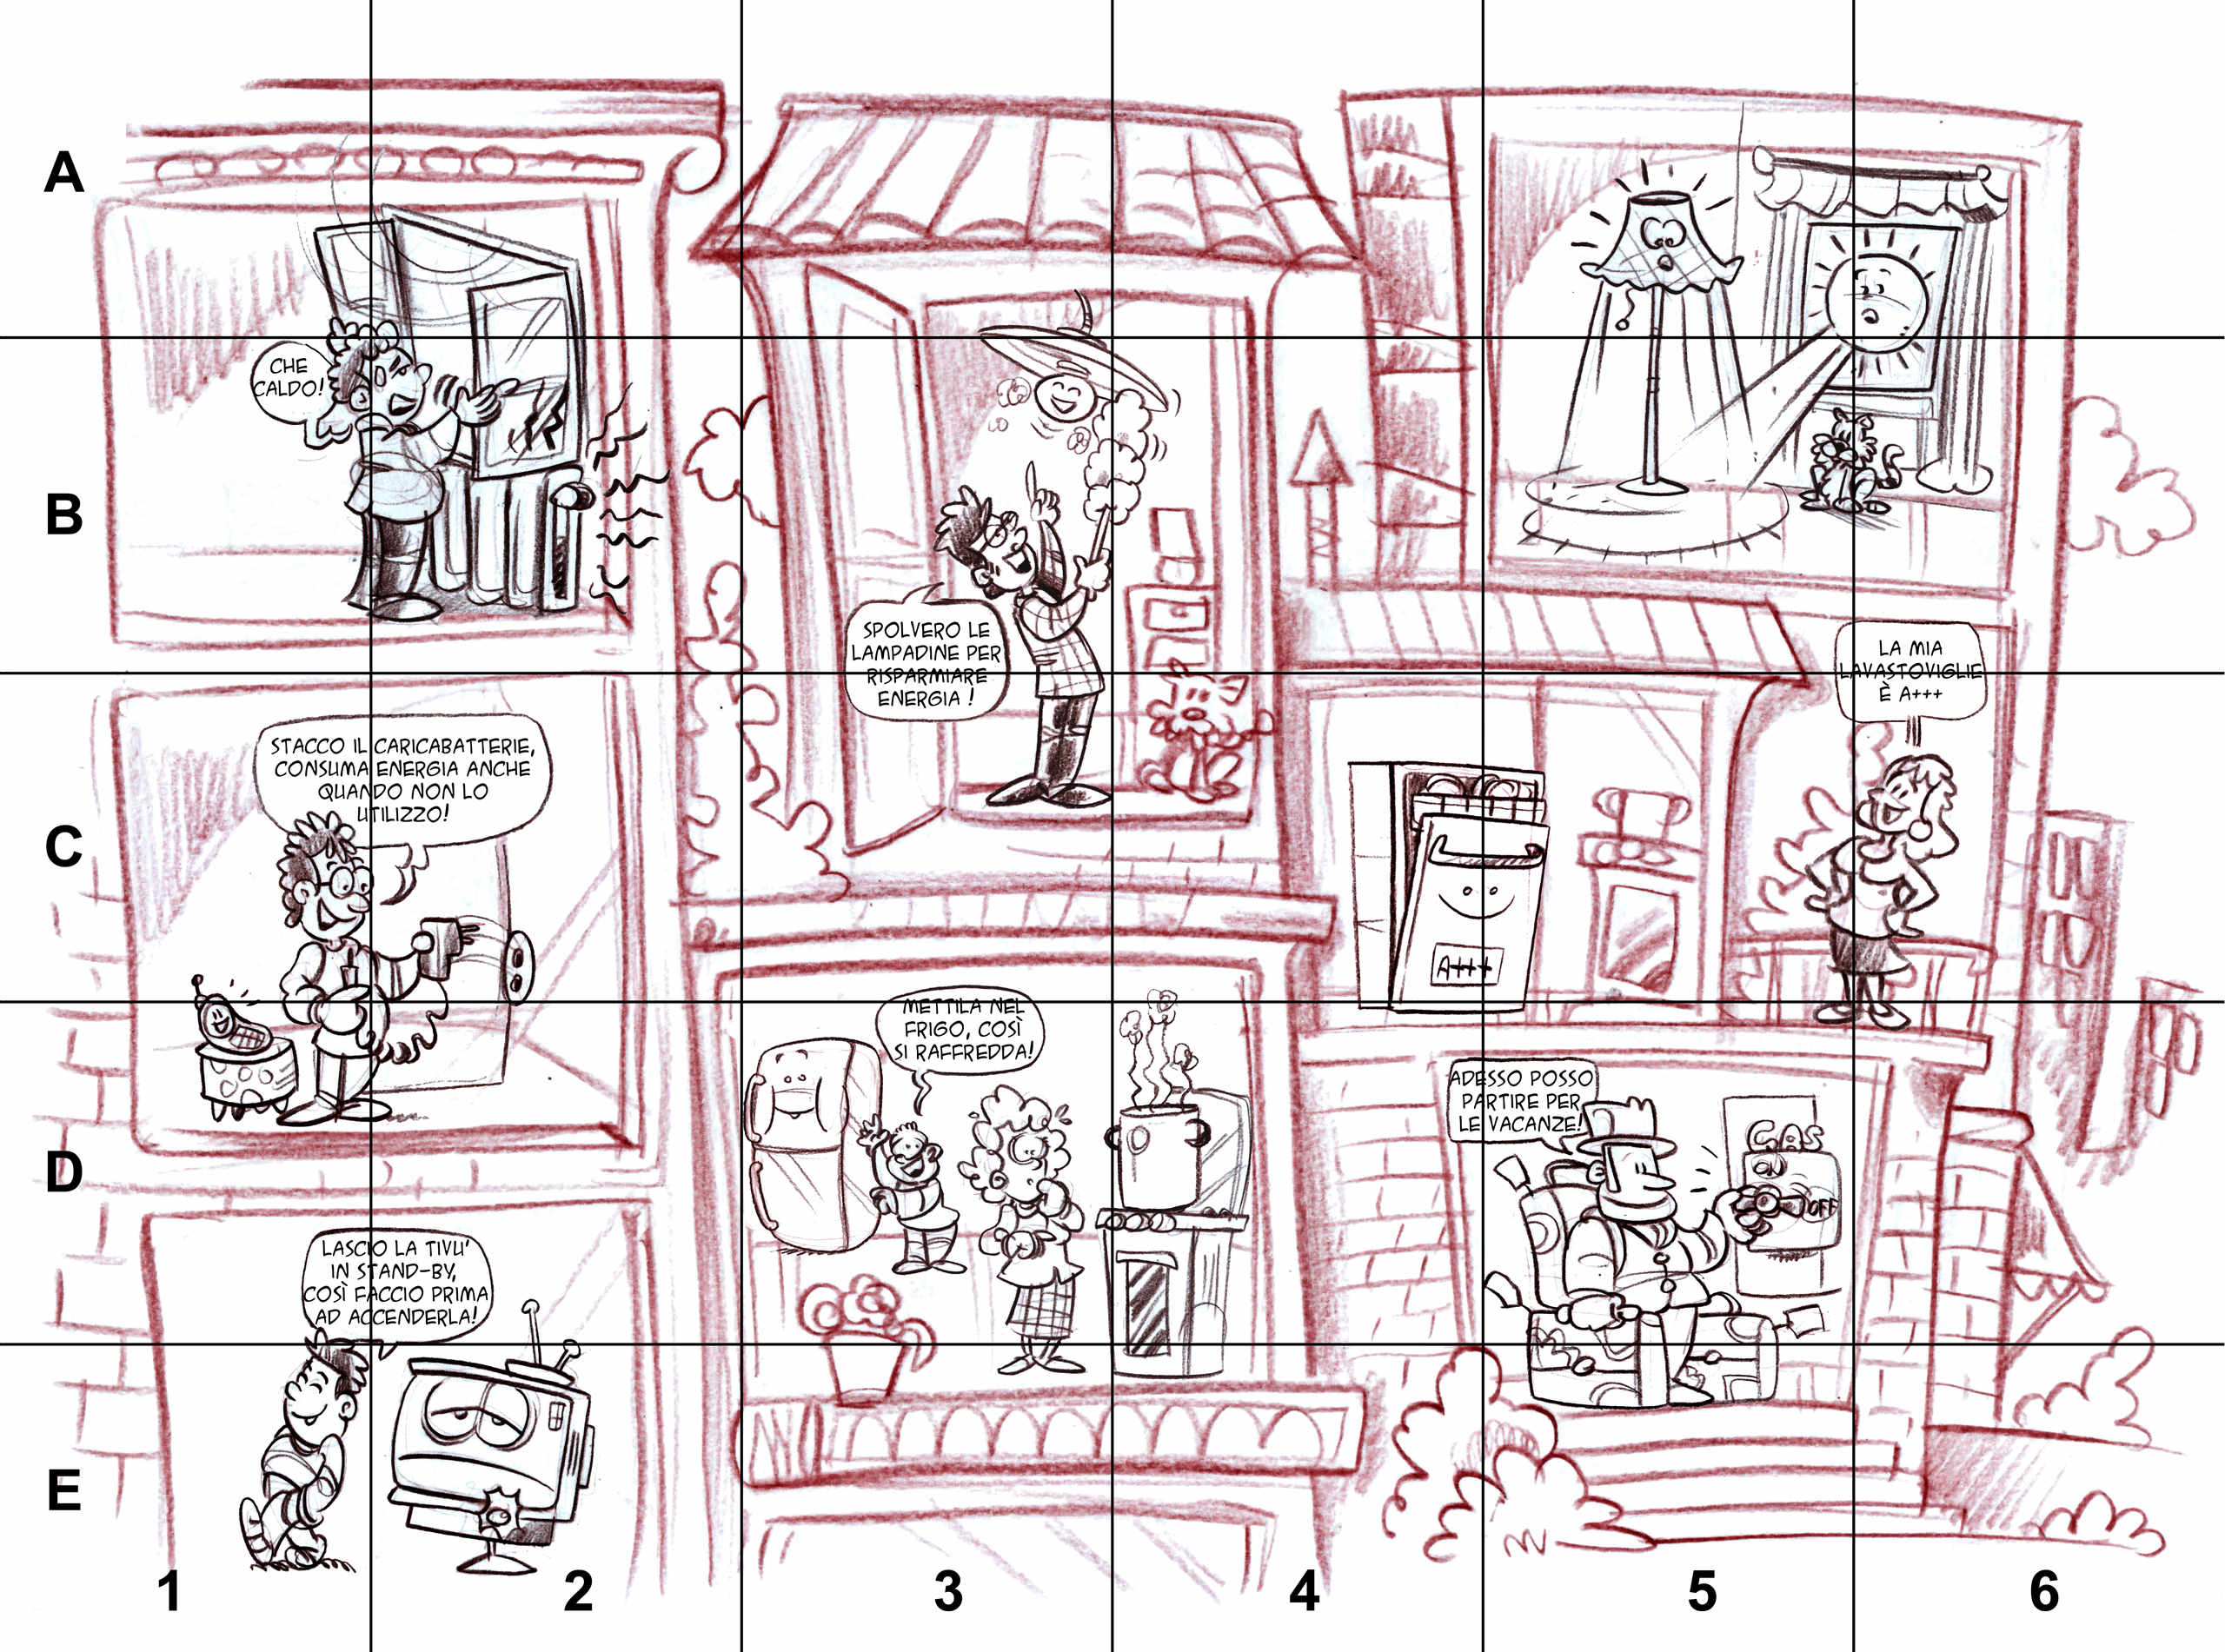 A
CHE
CALDO!
B
SPOLVERO LE
LAMPADINE PER
RISPARMIARE
ENERGIA !
LA MIA
LAVASTOVIGLIE
È A+++
STACCO IL CARICABATTERIE,
CONSUMA ENERGIA ANCHE
QUANDO NON LO
UTILIZZO!
C
A+++
METTILA NEL
FRIGO, COSÌ
SI RAFFREDDA!
ADESSO POSSO
PARTIRE PER
LE VACANZE!
GAS
ON
OFF
D
LASCIO LA TIVU'
IN STAND-BY,
COSÌ FACCIO PRIMA
AD ACCENDERLA!
E
1 2 3 4 5 6